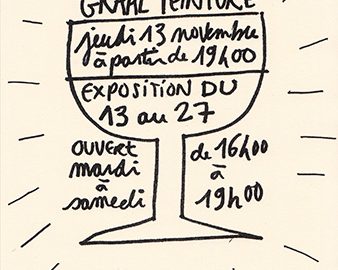 GRAAL PEINTURE
jeudi 13 novembre
à partir de 19h00
EXPOSITION DU
13 au 27
OUVERT
mardi
à
samedi
de 16h00
à
19h00